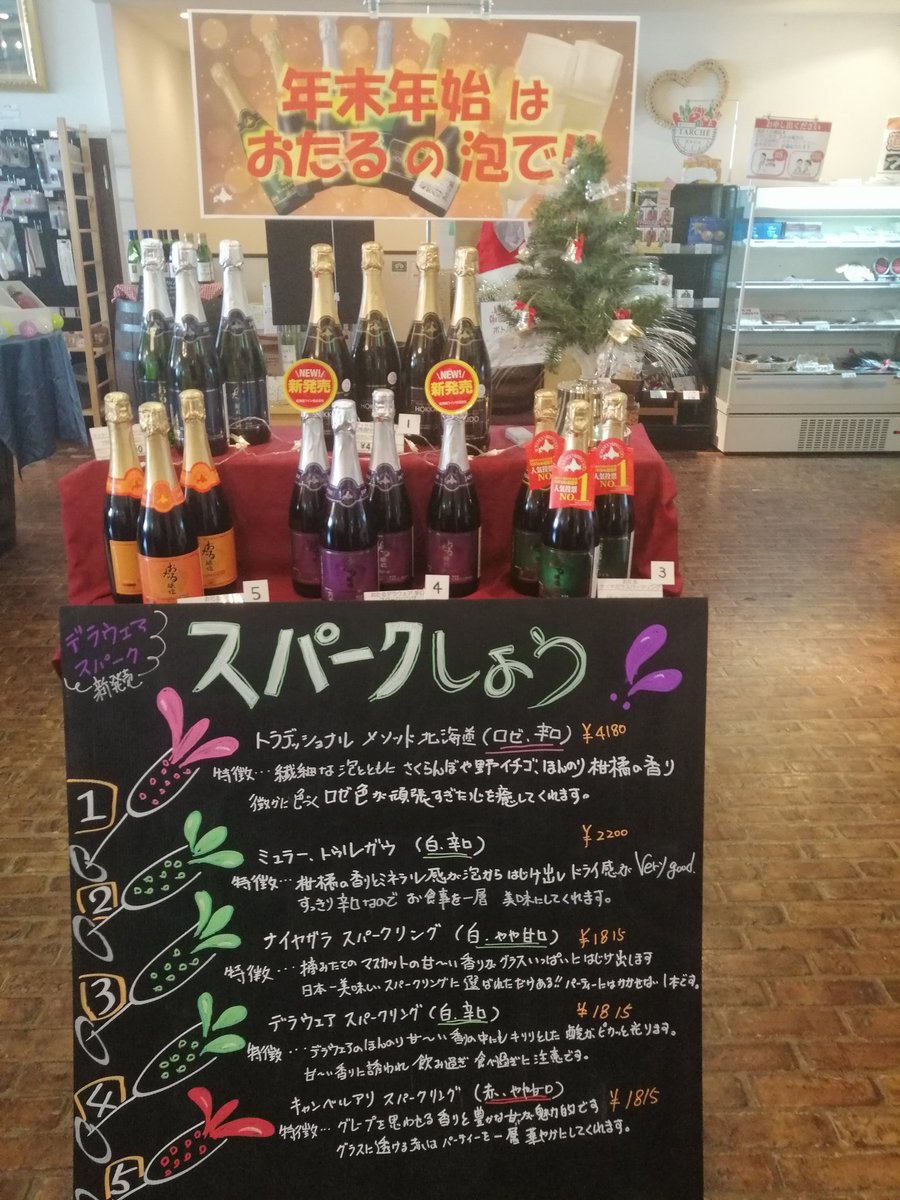 年末年始は
おたるの泡で!!
TARCHE
NEW!
新発売
NEW!
新発売
HOKKAIDO
1
人気投票
NO.1
人気投票
NO.1
おたる
5
4
3
デラウェア
スパーク
新発売
スパークしよう
1
トラディショナル メソッド 北海道(ロゼ、辛口) ¥4180
特徴…繊細な泡とともに さくらんぼや野イチゴ、ほんのり柑橘の香り
微かに色づくロゼ色が頑張すぎた心を癒してくれます。
2
ミュラー、トゥルガウ (白.辛口) ¥2200
特徴…柑橘の香りとミネラル感が泡からはじけ出しドライ感が Very good.
すっきり辛口なので お食事を一層 美味にしてくれます。
3
ナイヤガラ スパークリング (白.やや甘口) ¥1815
特徴…摘みたての マスカットの甘〜い香りがグラスいっぱいにはじけ出します
日本一美味しいスパークリングに 選ばれただけある!! パーティーにはかかせない1本です。
4
デラウェア スパークリング (白.辛口) ¥1815
特徴…デラウェアのほんのり甘〜い香りの中にもキリりとした 酸がピカっと光ります。
甘〜い香りに誘われ 飲み過ぎ 食べ過ぎに注意です。
5
キャンベルアリ スパークリング (赤、やや甘口) ¥1815
特徴…グレープを思わせる香りと豊かな甘が魅力的です
グラスに透ける赤は パーティーを一層 華やかにしてくれます。